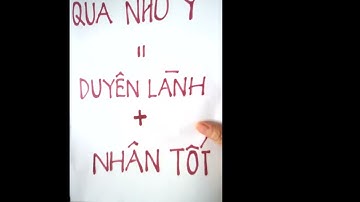 QUA NHƯ Ý
=
DUYÊN LÀNH
+
NHÂN TỐT